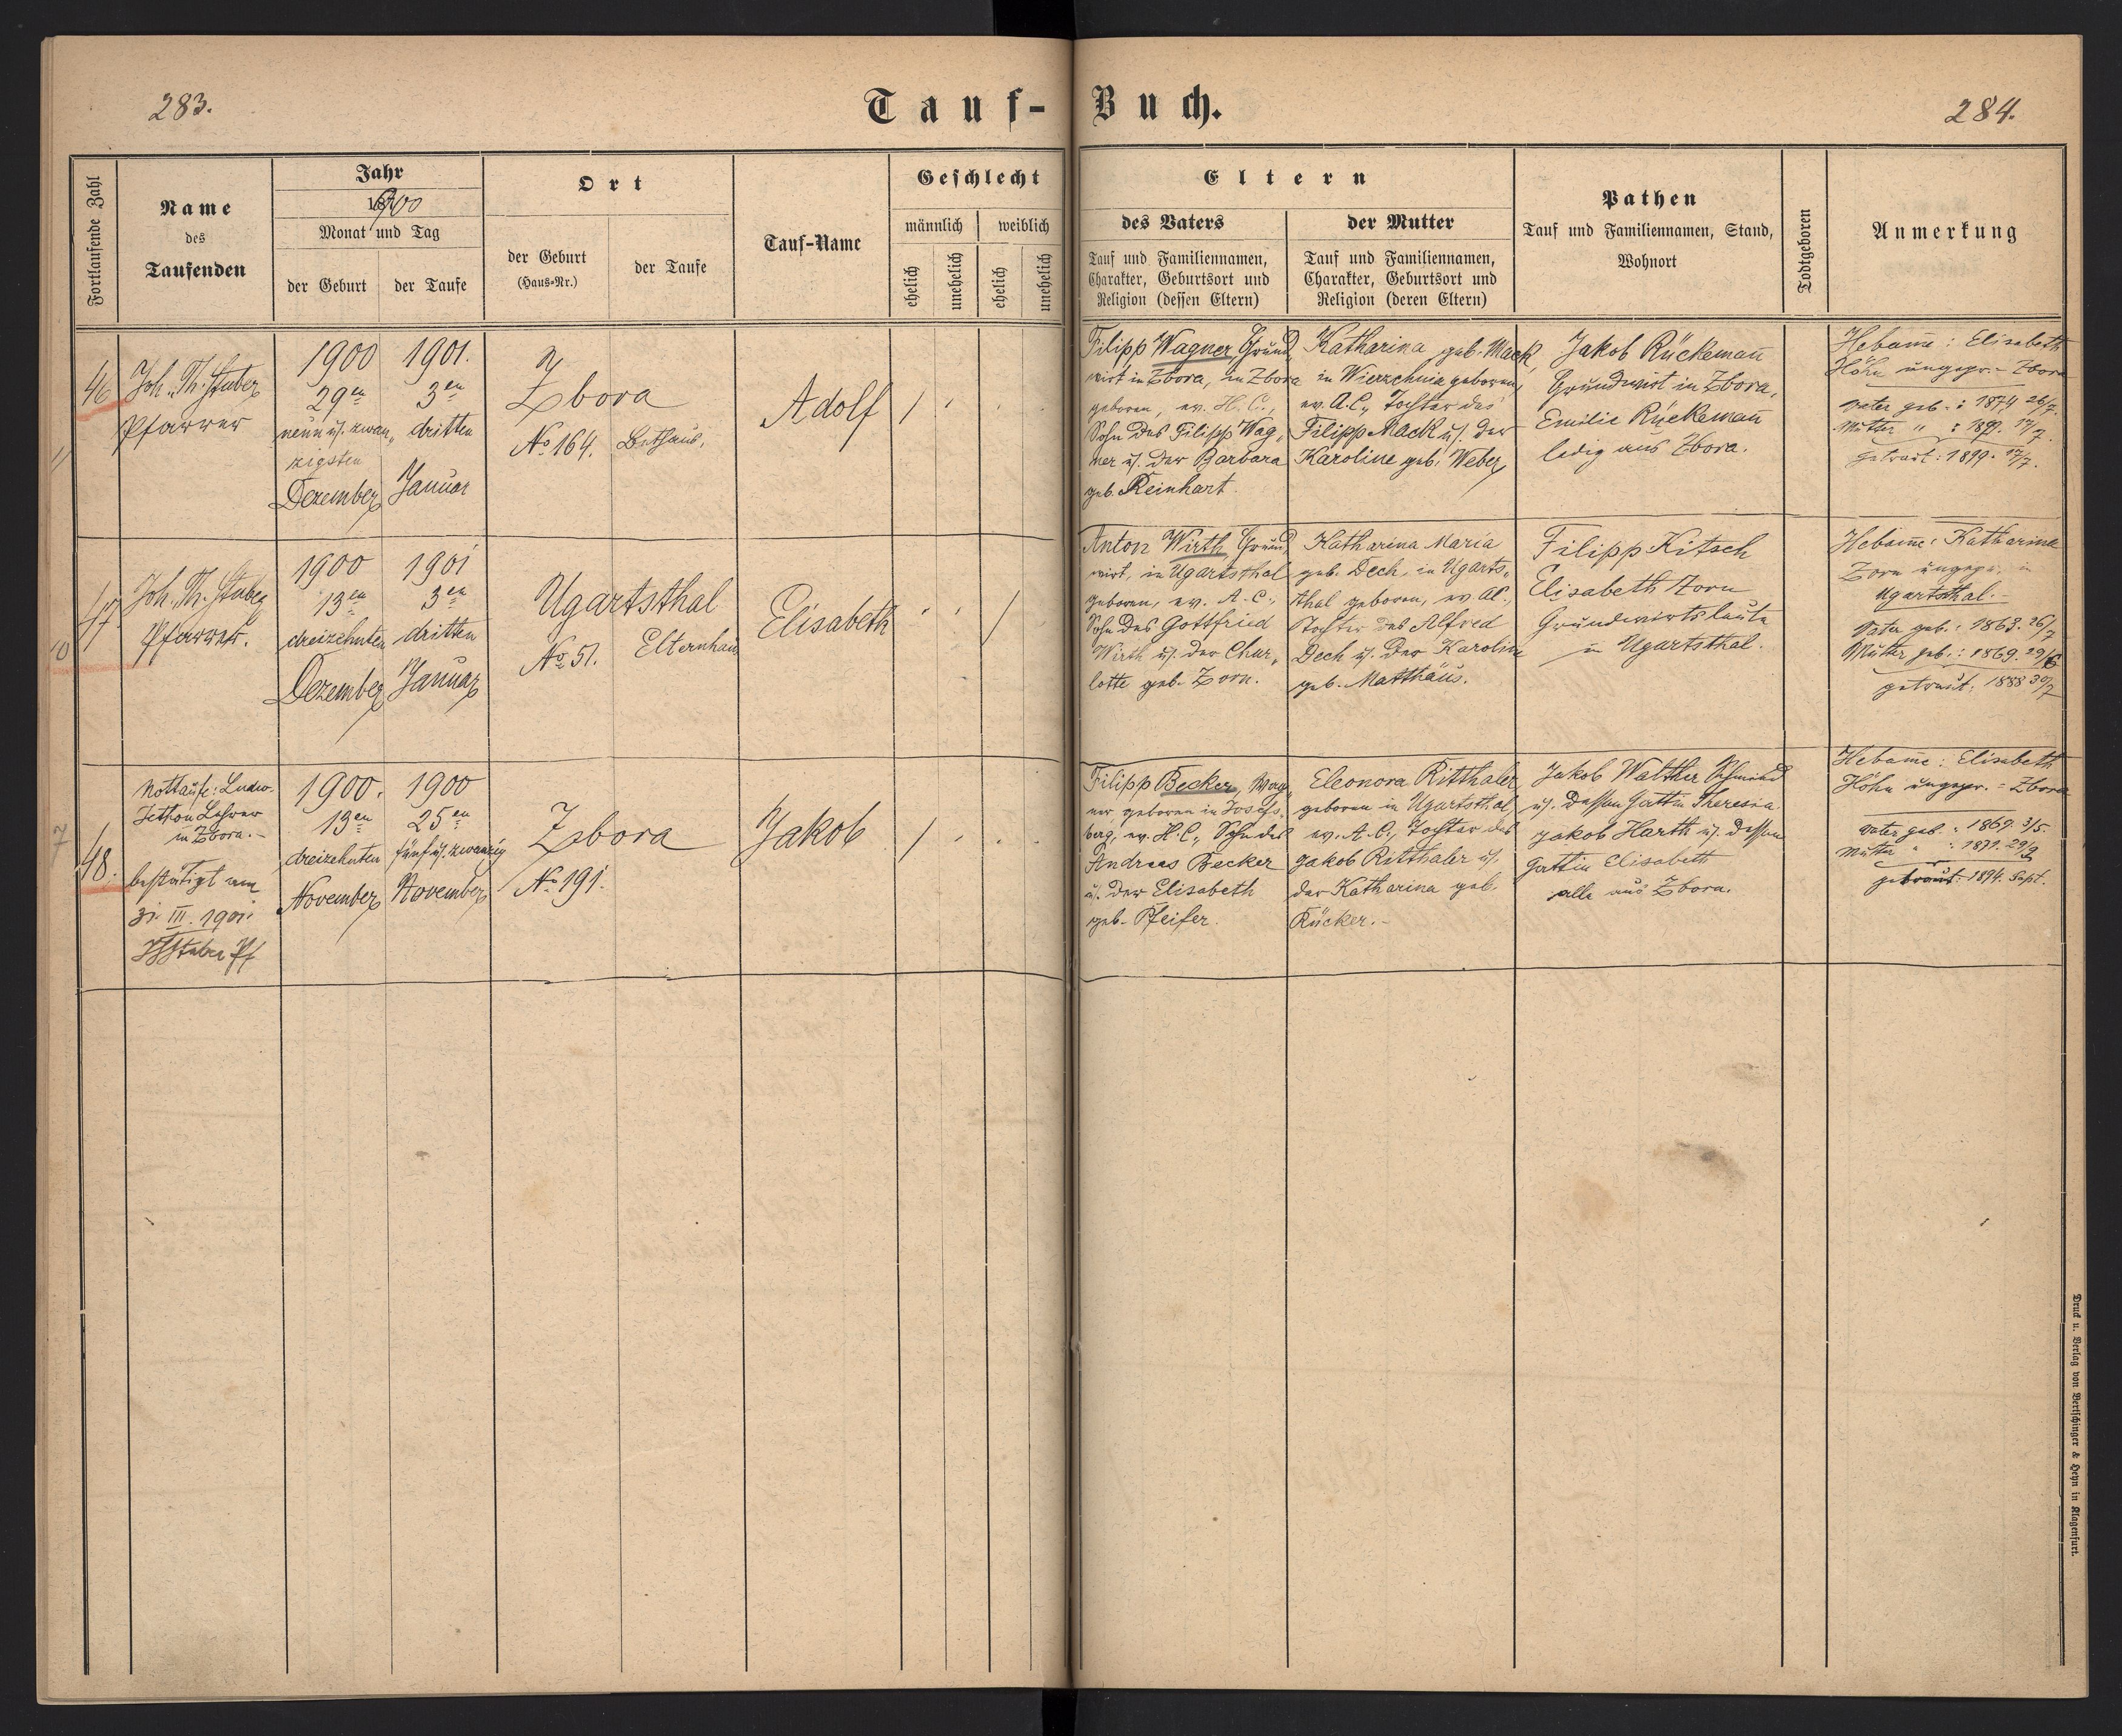 283.
Tauf-Buch.
284.
Fortlaufende Zahl
Name
des
Taufenden
Jahr
1900
Monat und Tag
der Geburt
der Taufe
Ort
der Geburt
(Haus-Nr.)
der Taufe
Tauf-Name
Geschlecht
männlich
weiblich
ehelich
unehelich
ehelich
unehelich
Eltern
des Vaters
Tauf und Familiennamen,
Charakter, Geburtsort und
Religion (dessen Eltern)
der Mutter
Tauf und Familiennamen,
Charakter, Geburtsort und
Religion (deren Eltern)
Pathen
Tauf und Familiennamen, Stand,
Wohnort
Todtgeboren
Anmerkung
11
46
Joh. Th. Stuber
Pfarrer
1900
29en
neun u. zwan„
zigsten
Dezember
1901.
3en
dritten
Januar
Zbora
No 164.
Bethaus,
Adolf
/
Filipp Wagner, Grund„
wirt in Zbora, in Zbora
geboren, ev. H. C.,
Sohn des Filipp Wag„
ner u. der Barbara
geb. Reinhart.
Katharina geb. Mack,
in Wierzchnia geboren,
ev. A. C., Tochter des
Filipp Mack u. der
Karoline geb. Weber
Jakob Rückemañ
Grundwirt in Zbora,
Emilie Rückemañ
ledig aus Zbora.
Hebam̅e: Elisabeth
Höhn ungepr. - Zbora
Vater geb.: 1874 26/7.
Mutter " : 17/7.
getraut: 1899. 17/7.
10
47
Joh. Th. Stuber
Pfarrer.
1900
13en
dreizehnten
Dezember
1901
3en
dritten
Januar
Ugartsthal
No 51.
Elternhaus
Elisabeth
/
Anton Wirth, Grund„
wirt, in Ugartsthal
geboren, ev. A. C.,
Sohn des Gottfried
Wirth u. der Char„
lotte geb. Zorn.
Katharina Maria
geb. Dech, in Ugarts„
thal geboren, ev. AC.,
Tochter des Alfred
Dech u. der Karoline
geb. Matthäus.
Filipp Kitsch
Elisabeth Zorn
Grundwirtsleute
in Ugartsthal.
Hebam̅e: Katharina
Zorn ungepr. in
Ugartsthal.-
Vater geb.: 1863. 26/7
Mutter geb.: 1869. 29/6
getraut: 1888 30/7
7
48.
Nottaufe: Ludw.
Jethon Lehrer
in Zbora.-
bestätigt am
31. III. 1901.
Stuber Pf
1900.
13en
dreizehnten
November
1900
25en
fünf u. zwanzig
November
Zbora
No 191.
Jakob
/
Filipp Becker, Wag„
ner, geboren in Josefs„
berg, ev. H. C., Sohn des
Andreas Becker
u. der Elisabeth
geb. Pfeifer.
Eleonora Ritthaler
geboren in Ugartsthal
ev. A. C., Tochter des
Jakob Ritthaler u.
der Katharina geb.
Rücker.-
Jakob Walther Schmied
u. dessen Gattin Theresia.
Jakob Harth u. dessen
Gattin Elisabeth
alle aus Zbora.
Hebam̅e: Elisabeth
Höhn ungepr. - Zbora
Vater geb.: 1869. 3/5.
Mutter " : 29/9
getraut: 1894. Sept.
Druck u. Verlag von Bertschinger & Heyn in Klagenfurt.